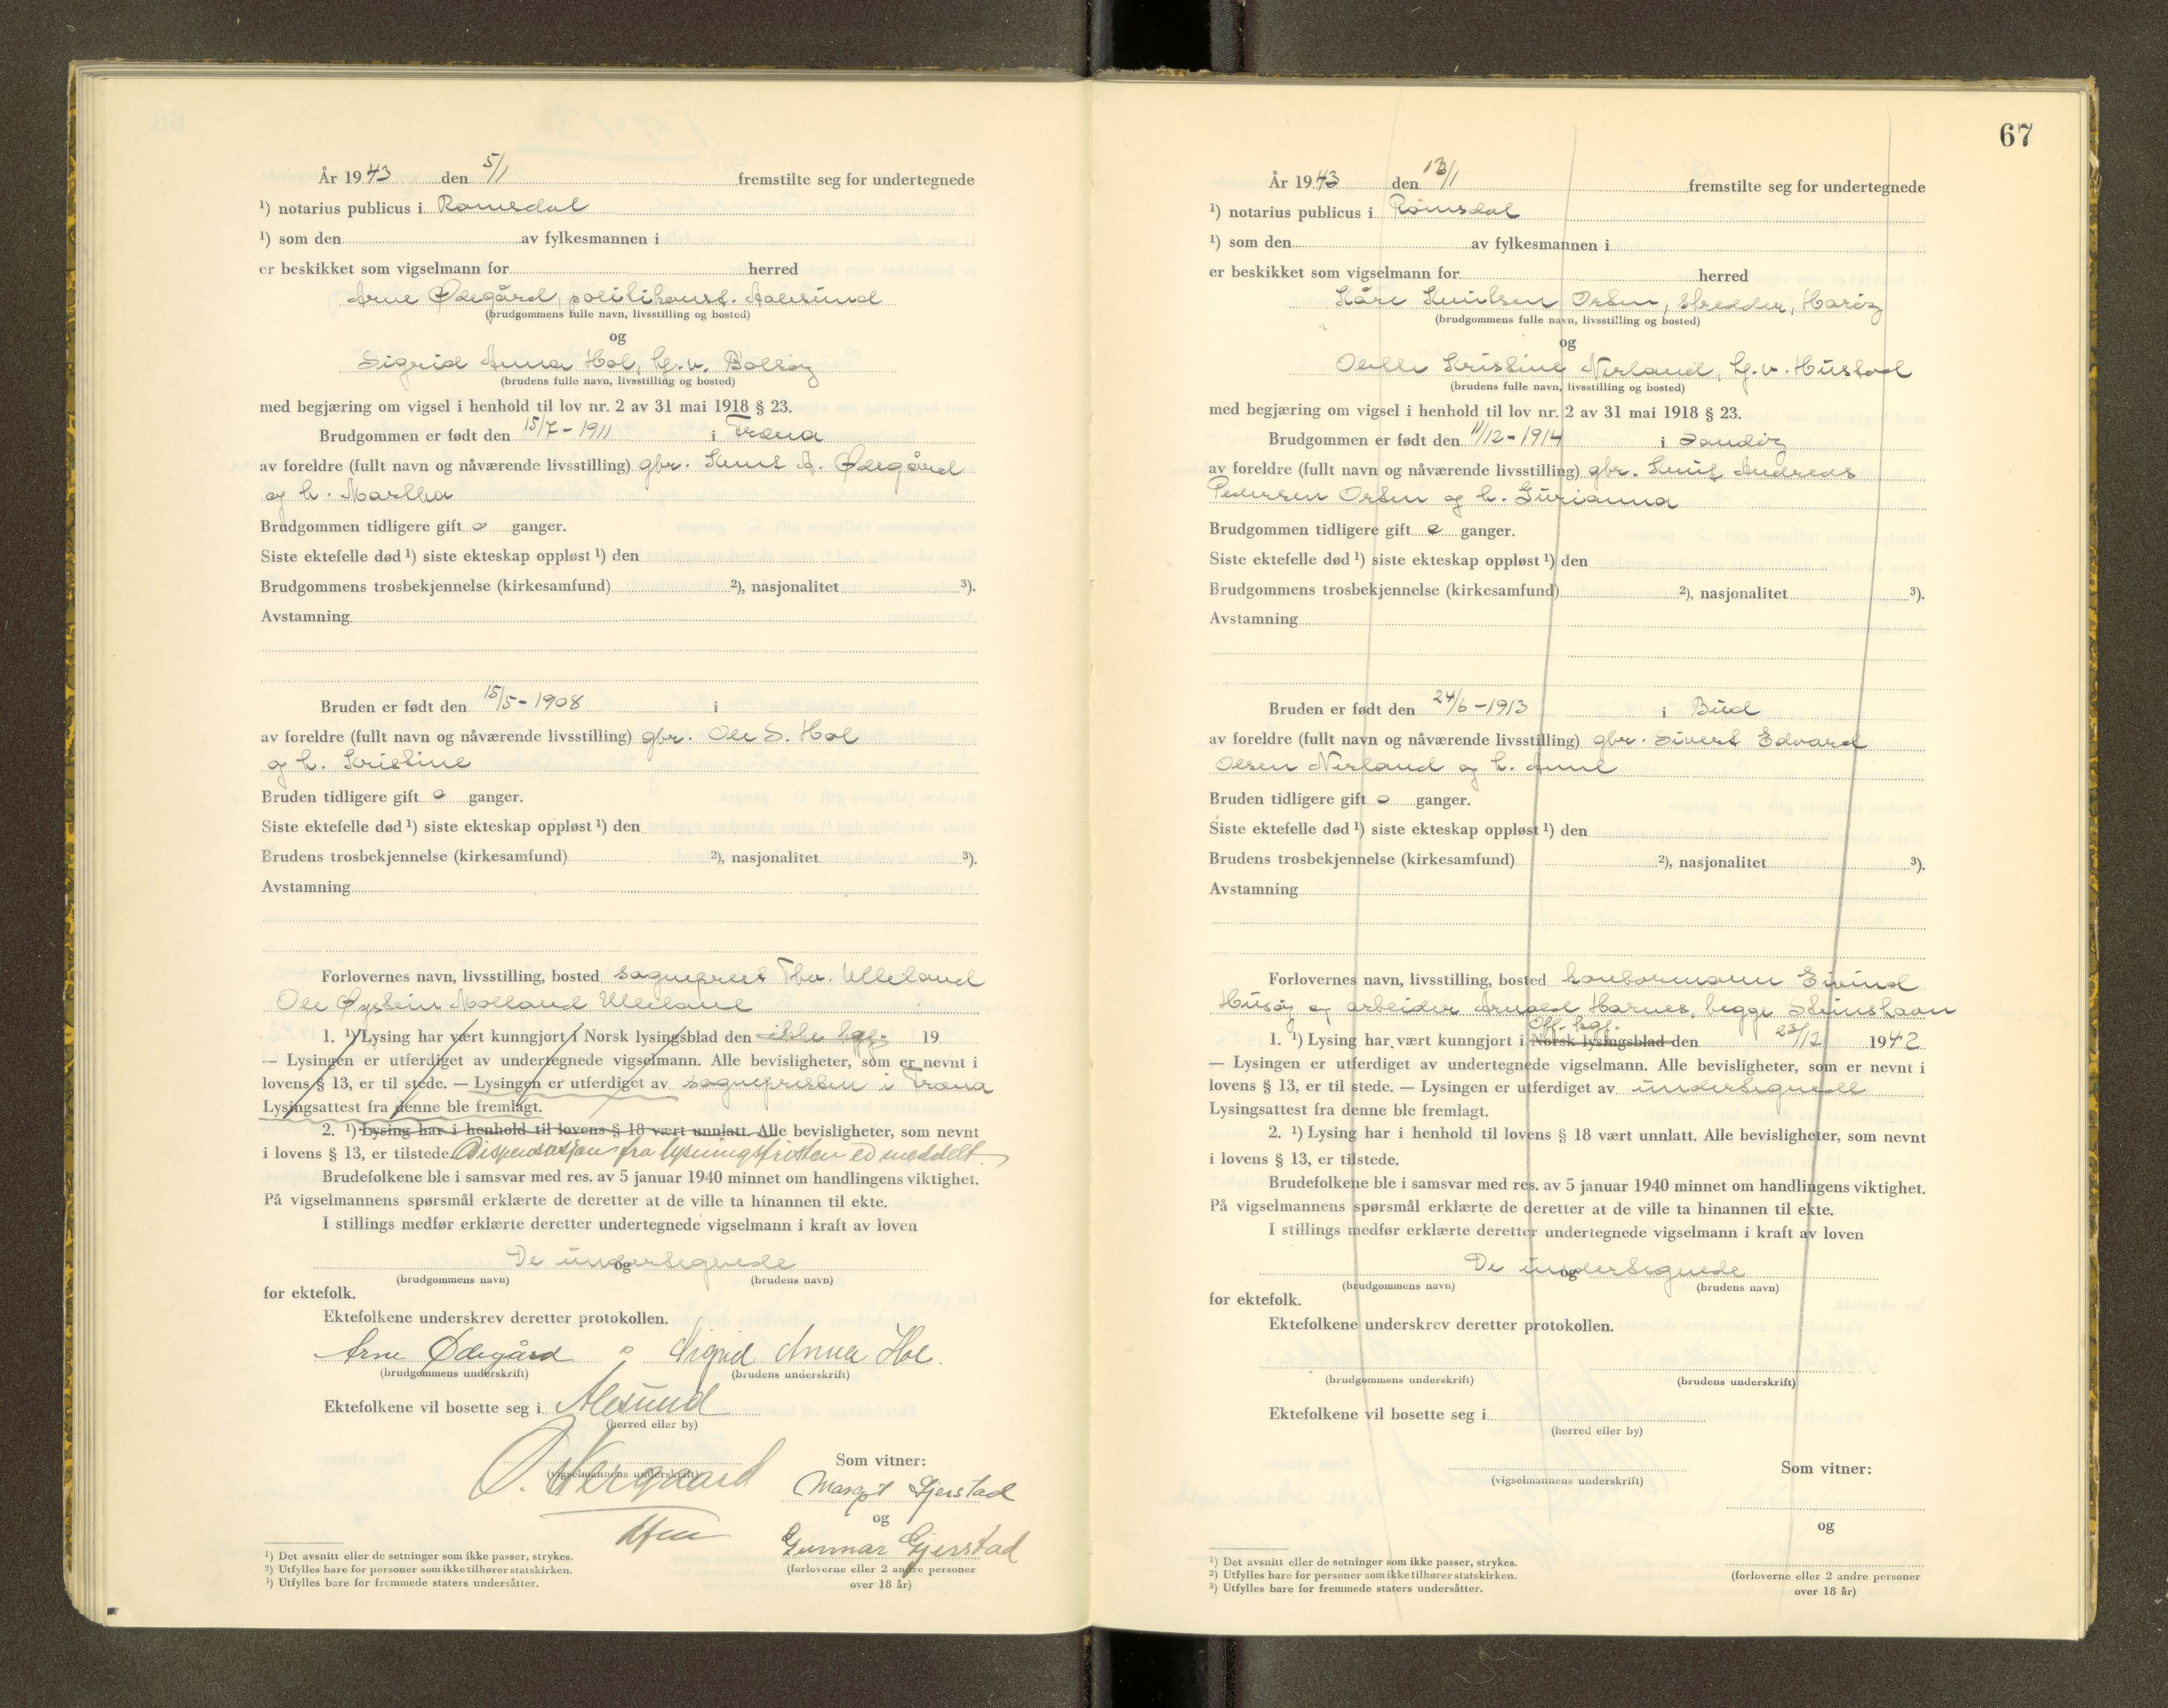 År 1943 den 5/1 fremstilte seg for undertegnede
¹) notarius publicus i Romsdal
¹) som den av fylkesmannen i
er beskikket som vigselmann for herred
Arne Ødegård, politikonst. Aalesund
(brudgommens fulle navn, livsstilling og bosted)
og
Sigrid Anna Hol, hj.v. Bolsøy
(brudens fulle navn, livsstilling og bosted)
med begjæring om vigsel i henhold til lov nr. 2 av 31 mai 1918 § 23.
Brudgommen er født den 15/7 - 1911 i Fræna
av foreldre (fullt navn og nåværende livsstilling) gbr. Knut A. Ødegård
og h. Martha
Brudgommen tidligere gift o ganger.
Siste ektefelle død ¹) siste ekteskap oppløst ¹) den
Brudgommens trosbekjennelse (kirkesamfund) ²), nasjonalitet ³).
Avstamning
Bruden er født den 15/5 - 1908 i
av foreldre (fullt navn og nåværende livsstilling) gbr. Ole S. Hol
og h. Kristine
Bruden tidligere gift o ganger.
Siste ektefelle død ¹) siste ekteskap oppløst ¹) den
Brudens trosbekjennelse (kirkesamfund) ²), nasjonalitet ³).
Avstamning
Forlovernes navn, livsstilling, bosted sogneprest Thv. Ulleland
Ole Øystein Molland Ulleland
1. ¹) Lysing har vært kunngjort i Norsk lysingsblad den ikke kgj. 19
— Lysingen er utferdiget av undertegnede vigselmann. Alle bevisligheter, som er nevnt i
lovens § 13, er til stede. — Lysingen er utferdiget av sognepresten i Fræna
Lysingsattest fra denne ble fremlagt.
2. ¹) Lysing har i henhold til lovens § 18 vært unnlatt. Alle bevisligheter, som nevnt
i lovens § 13, er tilstede. Dispensasjon fra lysningsfristen er meddelt.
Brudefolkene ble i samsvar med res. av 5 januar 1940 minnet om handlingens viktighet.
På vigselmannens spørsmål erklærte de deretter at de ville ta hinannen til ekte.
I stillings medfør erklærte deretter undertegnede vigselmann i kraft av loven
De undertegnede
og
(brudgommens navn) (brudens navn)
for ektefolk.
Ektefolkene underskrev deretter protokollen.
Arne Ødegård o Sigrid Anna Hol.
(brudgommens underskrift) (brudens underskrift)
Ektefolkene vil bosette seg i Ålesund
(herred eller by)
(vigselmannens underskrift)
Som vitner:
Margit Gjerstad
og
Gunnar Gjerstad
(forloverne eller 2 andre personer
over 18 år)
¹) Det avsnitt eller de setninger som ikke passer, strykes.
²) Utfylles bare for personer som ikke tilhører statskirken.
³) Utfylles bare for fremmede staters undersåtter.
67
År 1943 den 13/1 fremstilte seg for undertegnede
¹) notarius publicus i Romsdal
¹) som den av fylkesmannen i
er beskikket som vigselmann for herred
Kåre Knutsen Orten, skredder, Harøy
(brudgommens fulle navn, livsstilling og bosted)
og
Kristine Nerland, hj.v. Hustad
(brudens fulle navn, livsstilling og bosted)
med begjæring om vigsel i henhold til lov nr. 2 av 31 mai 1918 § 23.
Brudgommen er født den 11/12 - 1914 i Sandøy
av foreldre (fullt navn og nåværende livsstilling) gbr. Knut Andreas
Pedersen Orten og h. Gurianna
Brudgommen tidligere gift o ganger.
Siste ektefelle død ¹) siste ekteskap oppløst ¹) den
Brudgommens trosbekjennelse (kirkesamfund) ²), nasjonalitet ³).
Avstamning
Bruden er født den 24/6 - 1913 i Bud
av foreldre (fullt navn og nåværende livsstilling) gbr. Sivert Edvard
Olsen Nerland og h. Anne
Bruden tidligere gift o ganger.
Siste ektefelle død ¹) siste ekteskap oppløst ¹) den
Brudens trosbekjennelse (kirkesamfund) ²), nasjonalitet ³).
Avstamning
Forlovernes navn, livsstilling, bosted kontormann Eivind
Husøy og arbeider Arnold Harnes, begge Steinshavn
Off. kgj.
1. ¹) Lysing har vært kunngjort i Norsk lysingsblad den 23/12 1942
— Lysingen er utferdiget av undertegnede vigselmann. Alle bevisligheter, som er nevnt i
lovens § 13, er til stede. — Lysingen er utferdiget av undertegnede
Lysingsattest fra denne ble fremlagt.
2. ¹) Lysing har i henhold til lovens § 18 vært unnlatt. Alle bevisligheter, som nevnt
i lovens § 13, er tilstede.
Brudefolkene ble i samsvar med res. av 5 januar 1940 minnet om handlingens viktighet.
På vigselmannens spørsmål erklærte de deretter at de ville ta hinannen til ekte.
I stillings medfør erklærte deretter undertegnede vigselmann i kraft av loven
De undertegnede
og
(brudgommens navn) (brudens navn)
for ektefolk.
Ektefolkene underskrev deretter protokollen.
(brudgommens underskrift) (brudens underskrift)
Ektefolkene vil bosette seg i
(herred eller by)
(vigselmannens underskrift)
Som vitner:
og
(forloverne eller 2 andre personer
over 18 år)
¹) Det avsnitt eller de setninger som ikke passer, strykes.
²) Utfylles bare for personer som ikke tilhører statskirken.
³) Utfylles bare for fremmede staters undersåtter.